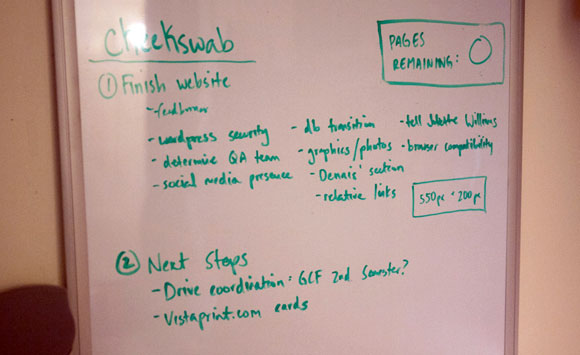 cheekswab
PAGES
REMAINING: O
① Finish website
- feedburner
- wordpress security
- determine QA team
- social media presence
- db transition
- graphics/photos
- Dennis' section
- relative links
- tell Williams
- browser compatibility
550px · 200px
② Next Steps
- Drive coordination: GCF 2nd Semester?
- Vistaprint.com cards